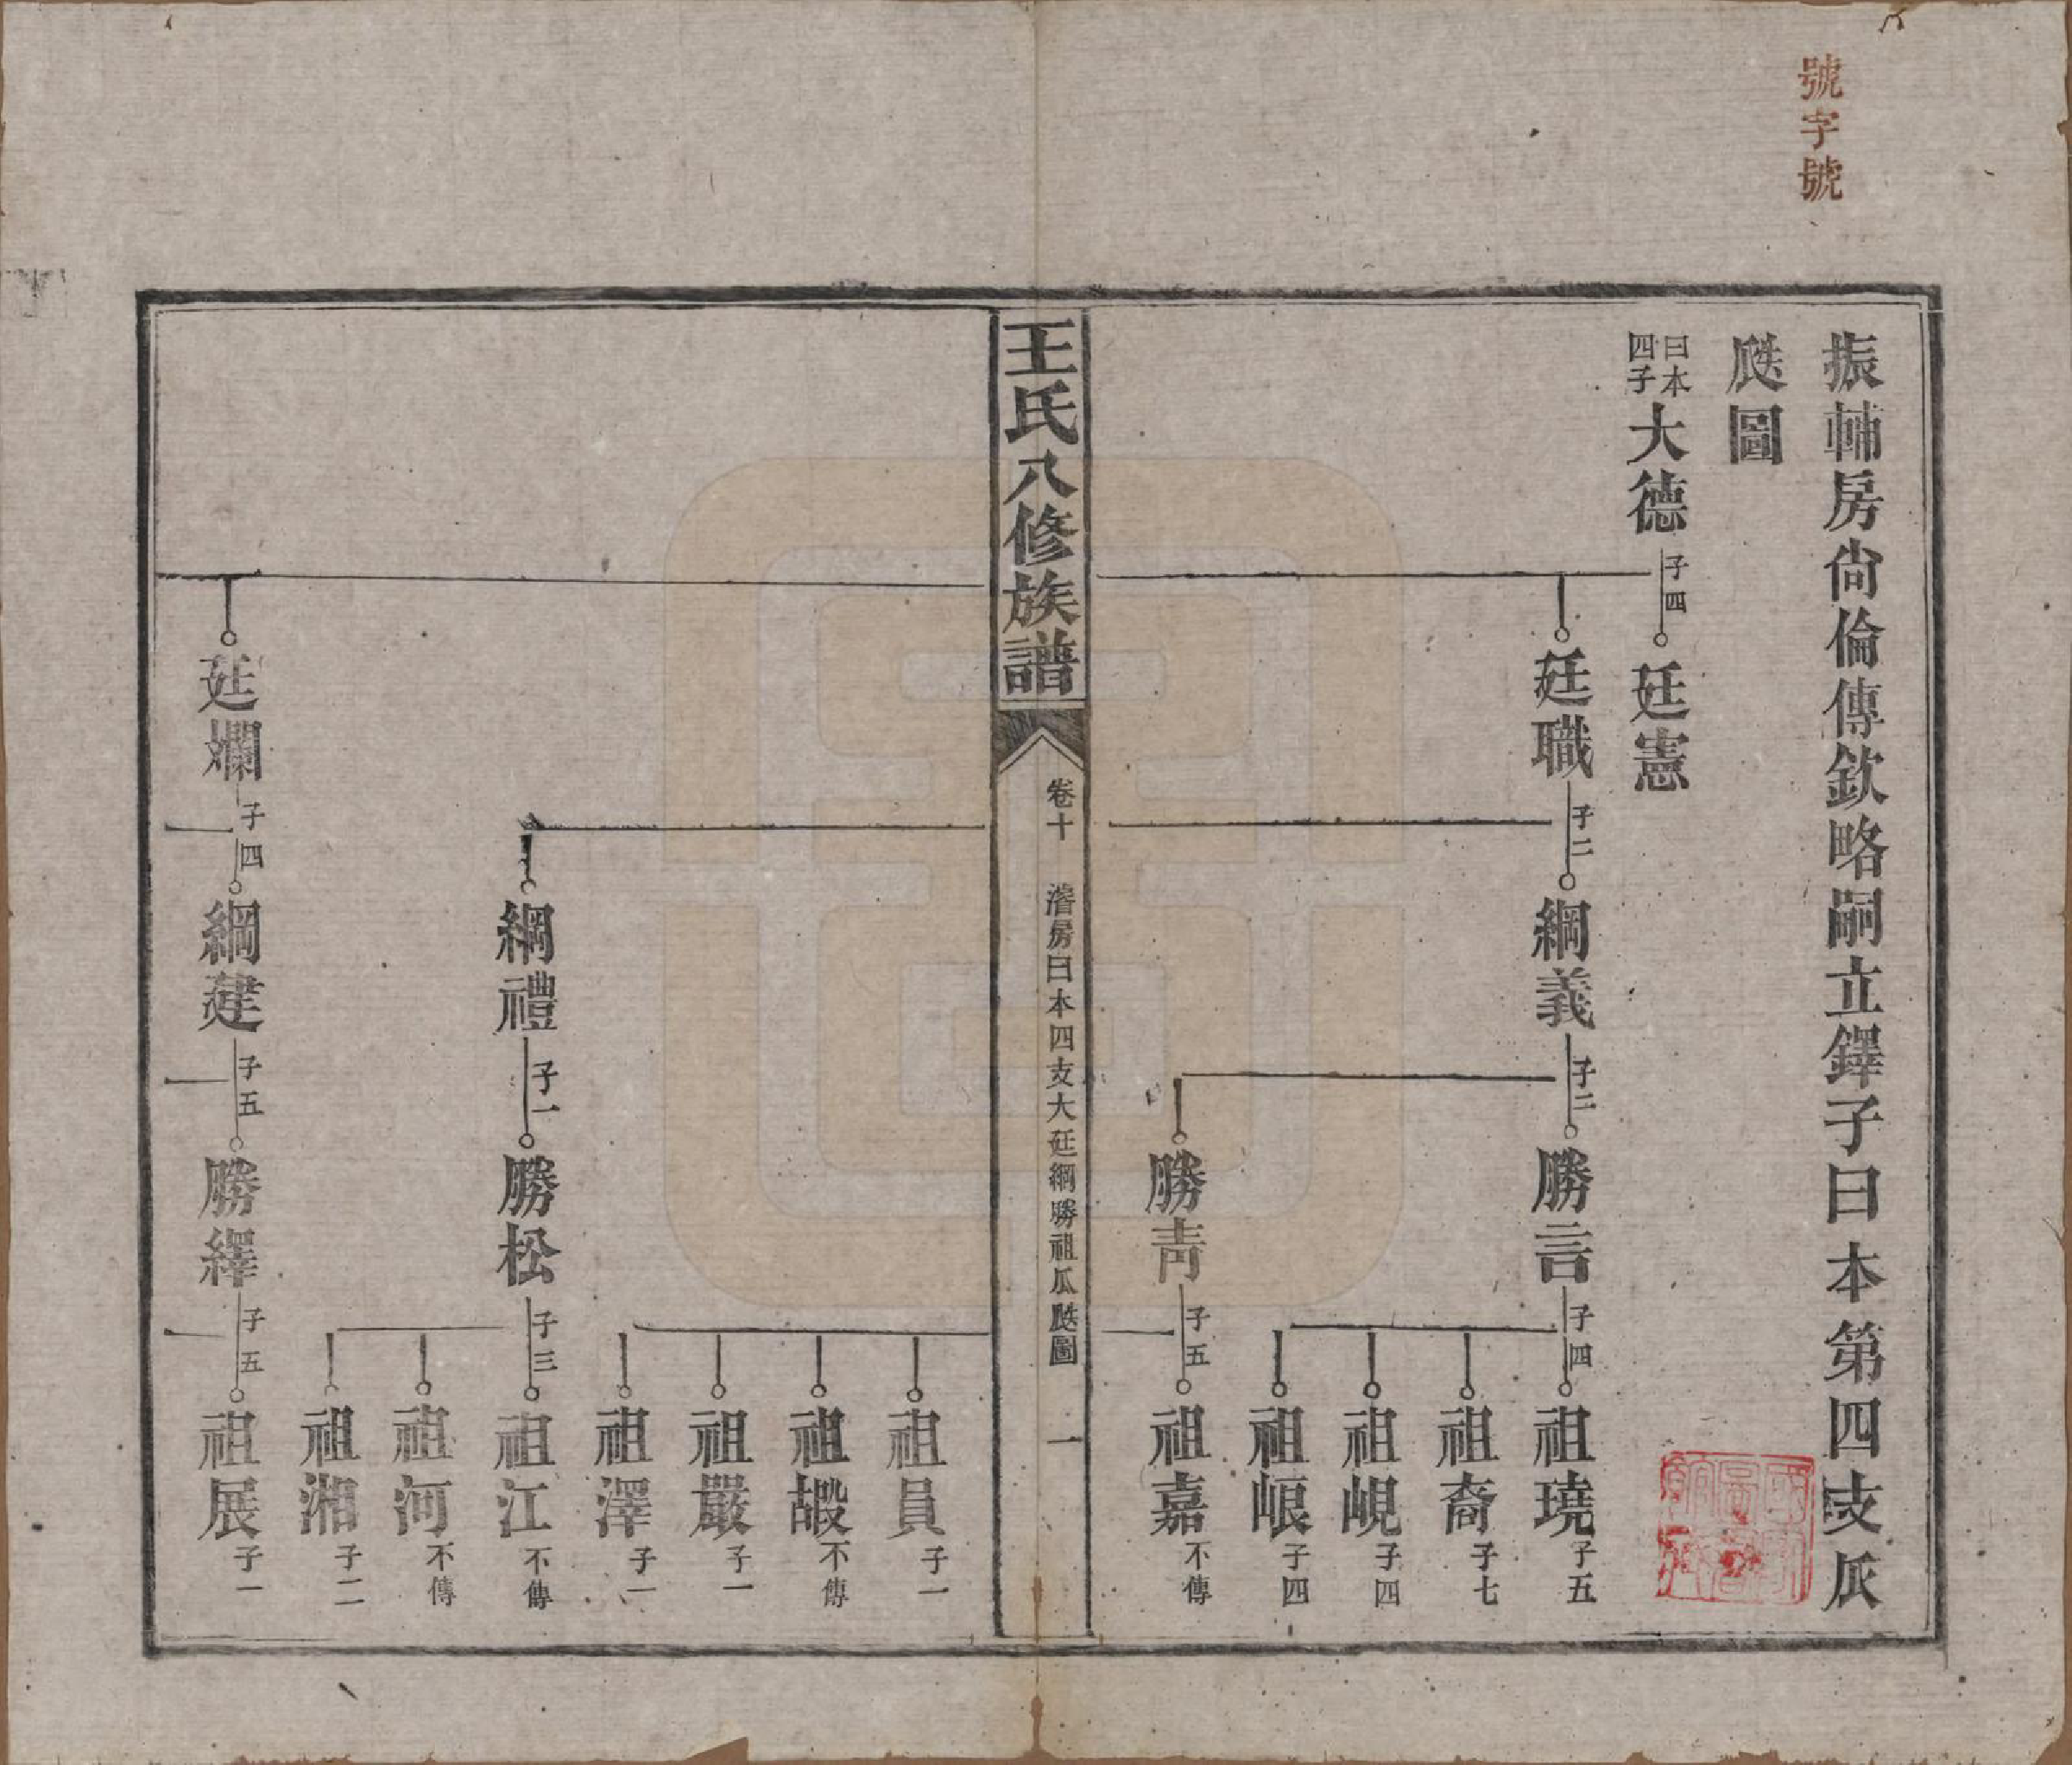 號字號
振輔房尙倫傳欽略嗣立鐸子曰本第四支瓜
瓞圖
曰本四子
大德 子四 廷憲
廷職 子二 綱義 子二 勝言 子四 祖璄 子五
祖裔 子七
祖峴 子四
祖崀 子四
勝青 子五 祖嘉 不傳
王氏八修族譜
卷十 濬房曰本四支大廷綱勝祖瓜瓞圖 一
祖員 子一
祖嘏 不傳
祖嚴 子一
祖澤 子一
綱禮 子一 勝松 子三 祖江 不傳
祖河 不傳
祖湘 子二
廷爛 子四 綱建 子五 勝繹 子五 祖展 子一